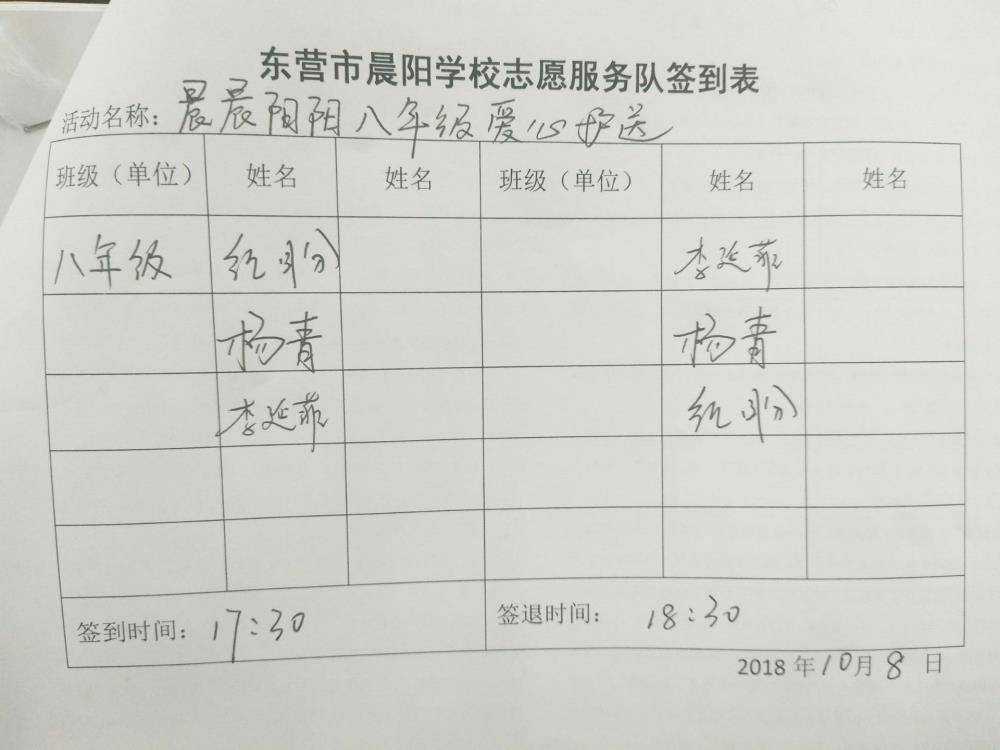 东营市晨阳学校志愿服务队签到表
活动名称：晨晨阳阳八年级爱心护送
班级（单位） 姓名 姓名 班级（单位） 姓名 姓名
八年级 纪 李延菲
杨青 杨青
李延菲 纪
签到时间：17:30 签退时间：18:30
2018年10月8日